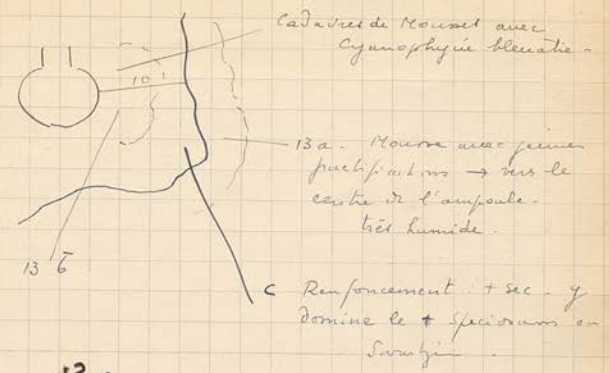 Cadavres de Mousses avec
Cyanophycée bleuâtre -
10
13 a. Mousse avec jeunes
fructifications → vers le
centre de l'ampoule.
très humide.
13 b
C Renfoncement : + sec - y
domine le + speciosum ou
13